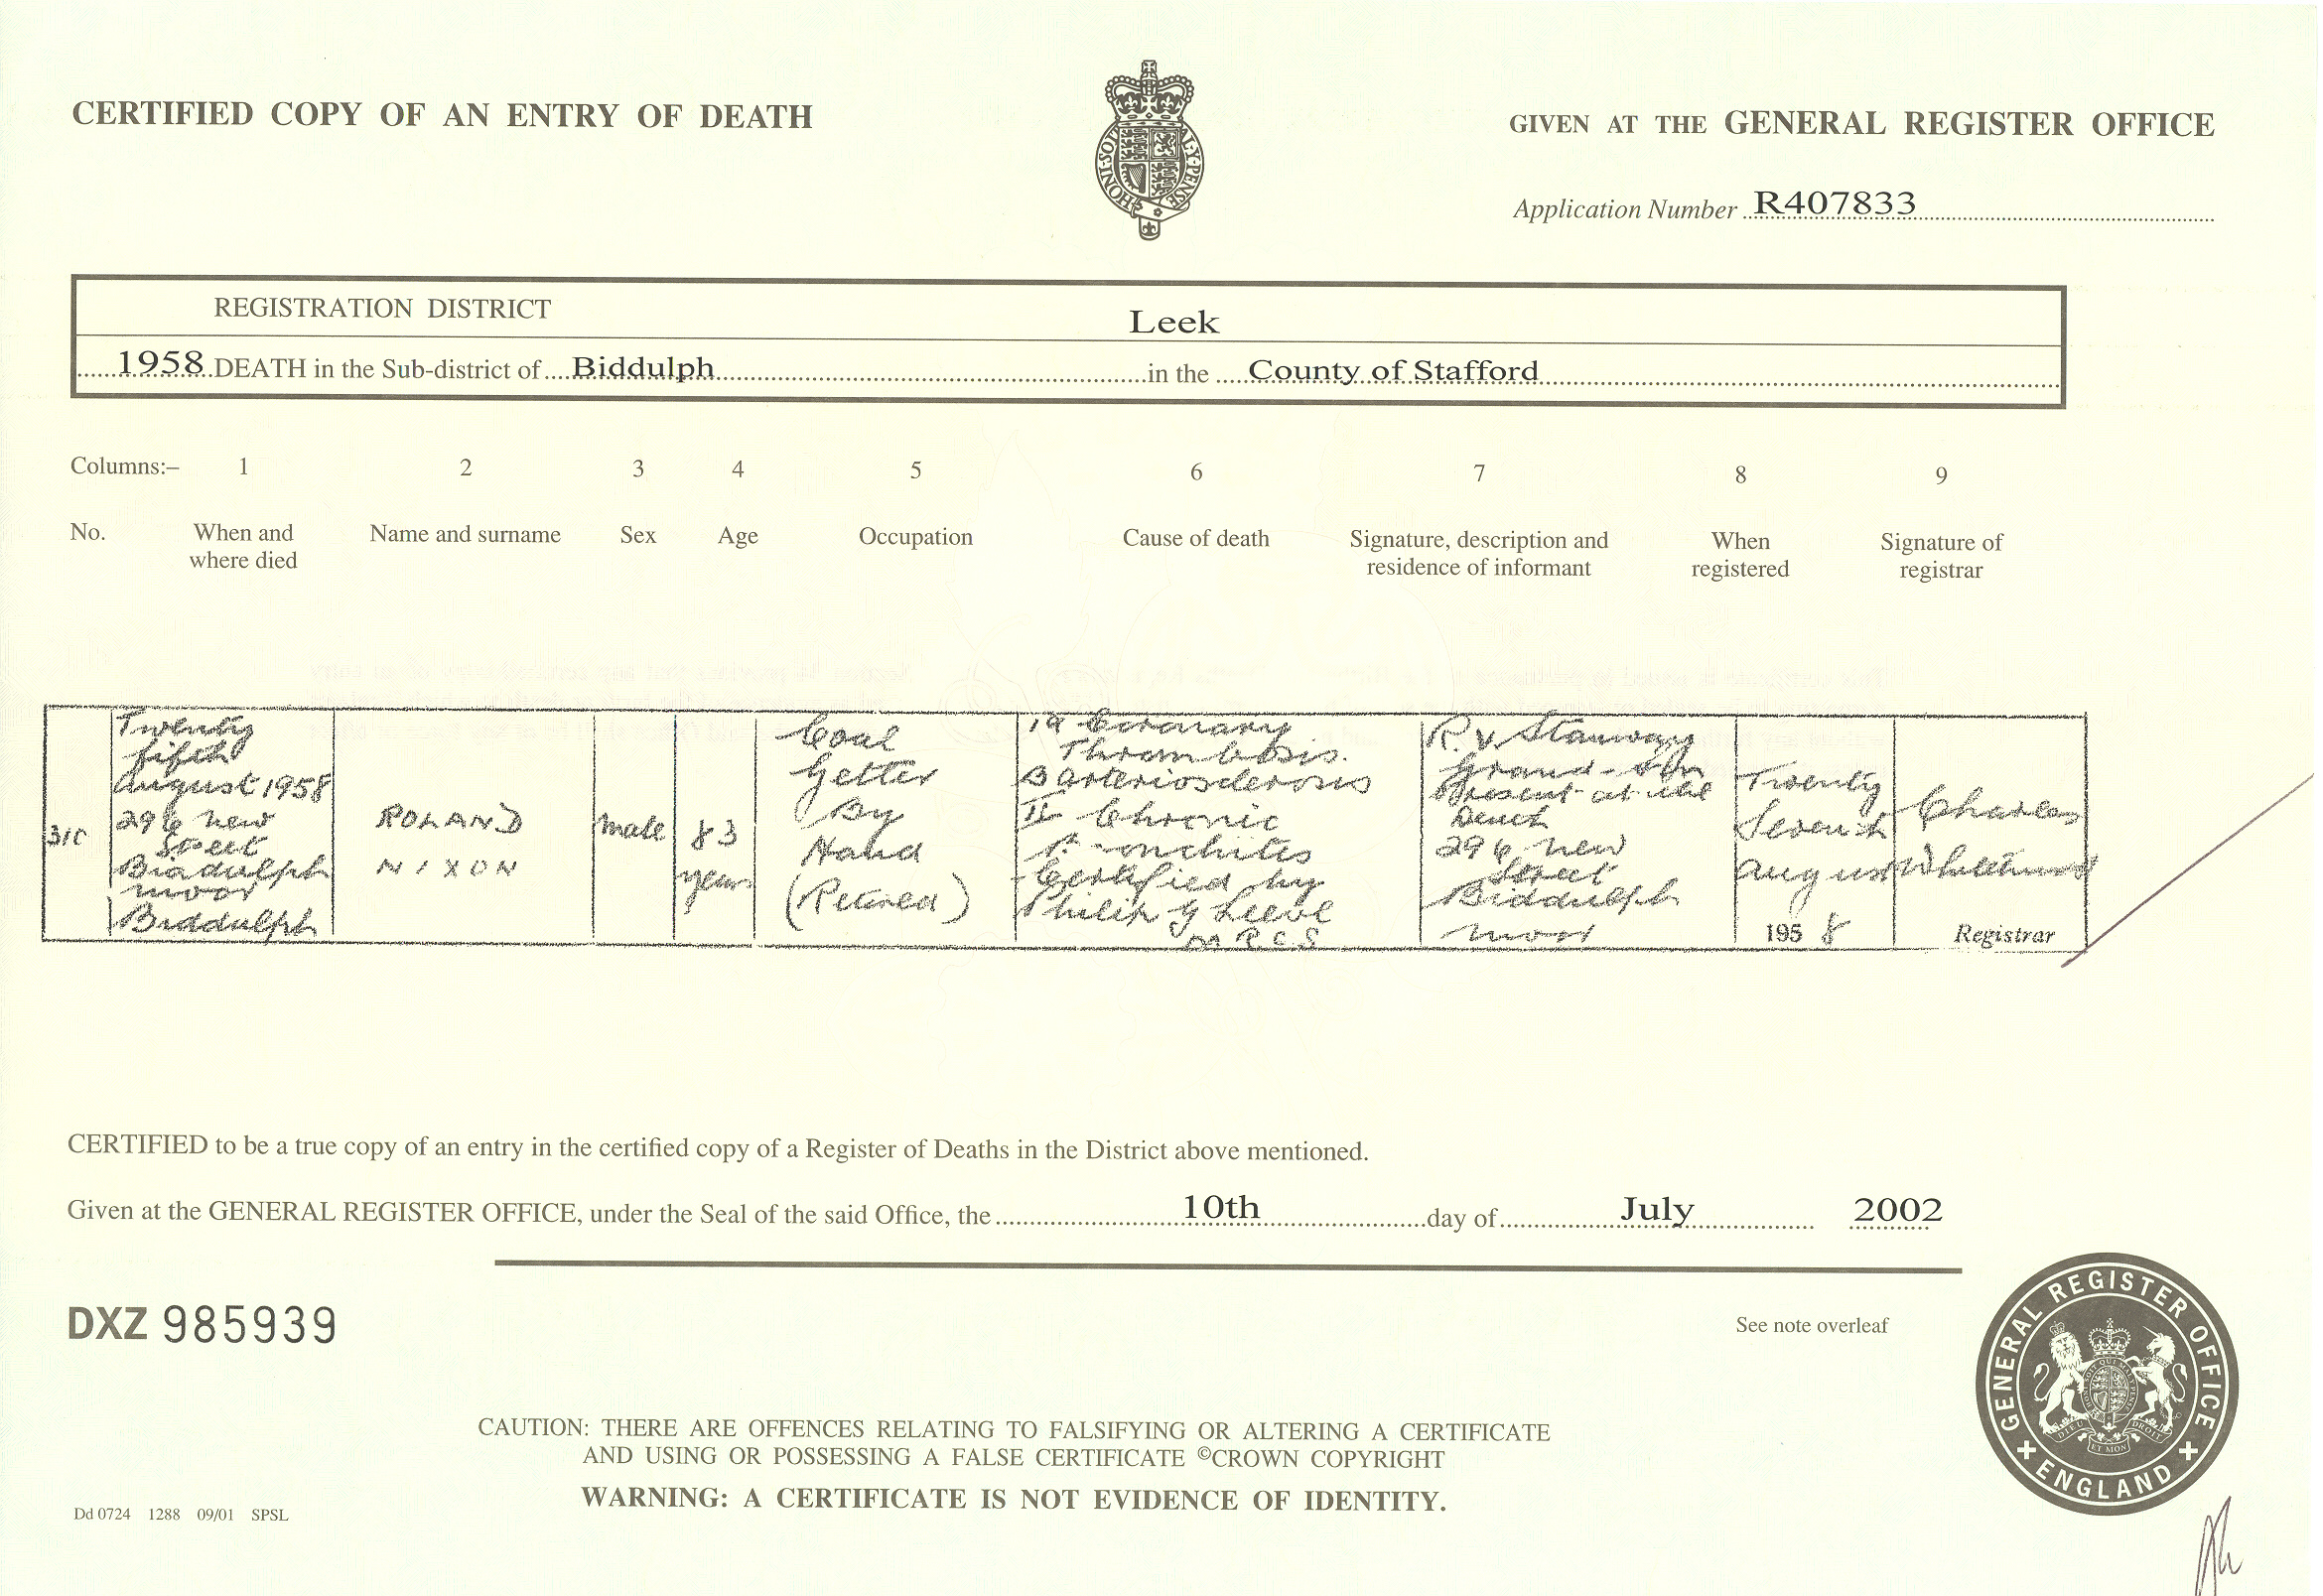 CERTIFIED COPY OF AN ENTRY OF DEATH
HONI·SOIT Y·PENSE
GIVEN AT THE GENERAL REGISTER OFFICE
Application Number R407833
REGISTRATION DISTRICT Leek
1958 DEATH in the Sub-district of Biddulph in the County of Stafford
Columns:– 1 2 3 4 5 6 7 8 9
No.
When and
where died
Name and surname
Sex
Age
Occupation
Cause of death
Signature, description and
residence of informant
When
registered
Signature of
registrar
310
Twenty
fifth
August 1958
296 New
Street
Biddulph
Moor
Biddulph
ROLAND
NIXON
Male
83
years
Coal
Getter
By
Hand
(Retired)
1a Coronary
Thrombosis.
B arteriosclerosis
II Chronic
Certified by
Philip G
M R C S
R. V. Stanway
Grand-son
Present at the
Death
296 New
Street
Biddulph
Moor
Twenty
Seventh
August
1958
Charles
Whitehurst
Registrar
CERTIFIED to be a true copy of an entry in the certified copy of a Register of Deaths in the District above mentioned.
Given at the GENERAL REGISTER OFFICE, under the Seal of the said Office, the 10th day of July 2002
DXZ 985939
See note overleaf
GENERAL REGISTER OFFICE
ENGLAND
CAUTION: THERE ARE OFFENCES RELATING TO FALSIFYING OR ALTERING A CERTIFICATE
AND USING OR POSSESSING A FALSE CERTIFICATE ©CROWN COPYRIGHT
WARNING: A CERTIFICATE IS NOT EVIDENCE OF IDENTITY.
Dd 0724 1288 09/01 SPSL